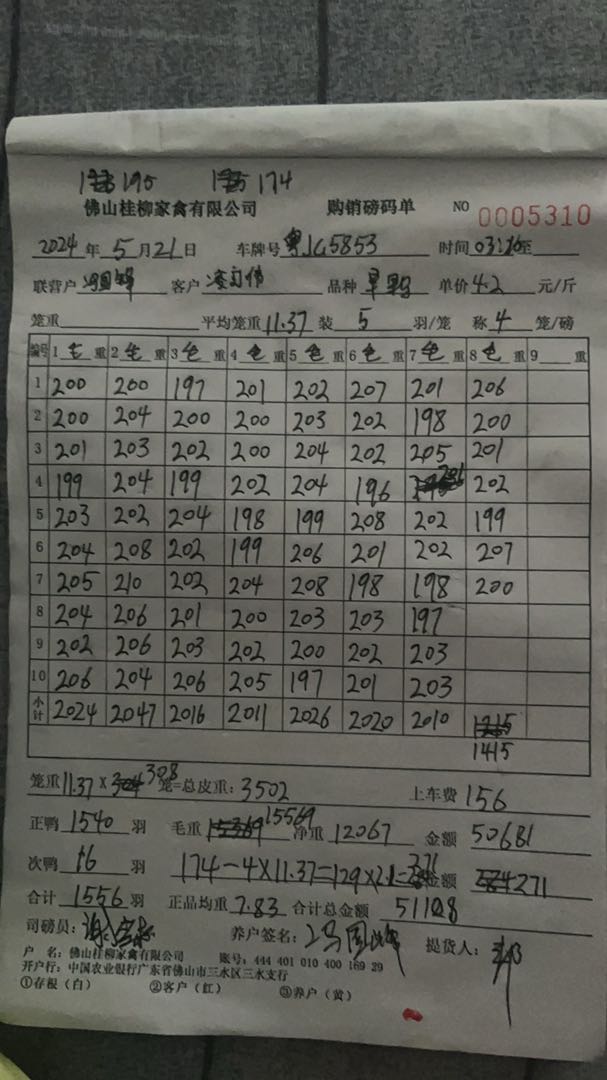 195 174
佛山桂柳家禽有限公司 购销磅码单 NO 0005310
2024年5月21日 车牌号 粤J65853 时间 03:26至
联营户 客户 品种 单价 4.2 元/斤
笼重 平均笼重 11.37 装 5 羽/笼 称 4 笼/磅
编号 1 毛重 2 毛重 3 毛重 4 毛重 5 毛重 6 毛重 7 毛重 8 毛重 9 重
1 200 200 197 201 202 207 201 206
2 200 204 200 200 203 202 198 200
3 201 203 202 200 204 202 205 201
4 199 204 199 202 204 196 201 202
5 203 202 204 198 199 208 202 199
6 204 208 202 199 206 201 202 207
7 205 210 202 204 208 198 198 200
8 204 206 201 200 203 203 197
9 202 206 203 202 200 202 203
10 206 204 206 205 197 201 203
小计 2024 2047 2016 2011 2026 2020 2010 1215
1415
笼重 11.37 × 308 笼=总皮重: 3502 上车费 156
正鸭 1540 羽 毛重 15569 净重 12067 金额 50681
次鸭 16 羽 174-4×11.37=129×2.1=271 金额 271
合计 1556 羽 正品均重 7.83 合计总金额 51108
司磅员: 养户签名: 提货人:
户 名: 佛山桂柳家禽有限公司 账号: 444 401 010 400 169 29
开户行: 中国农业银行广东省佛山市三水区三水支行
①存根(白) ②客户(红) ③养户(黄)